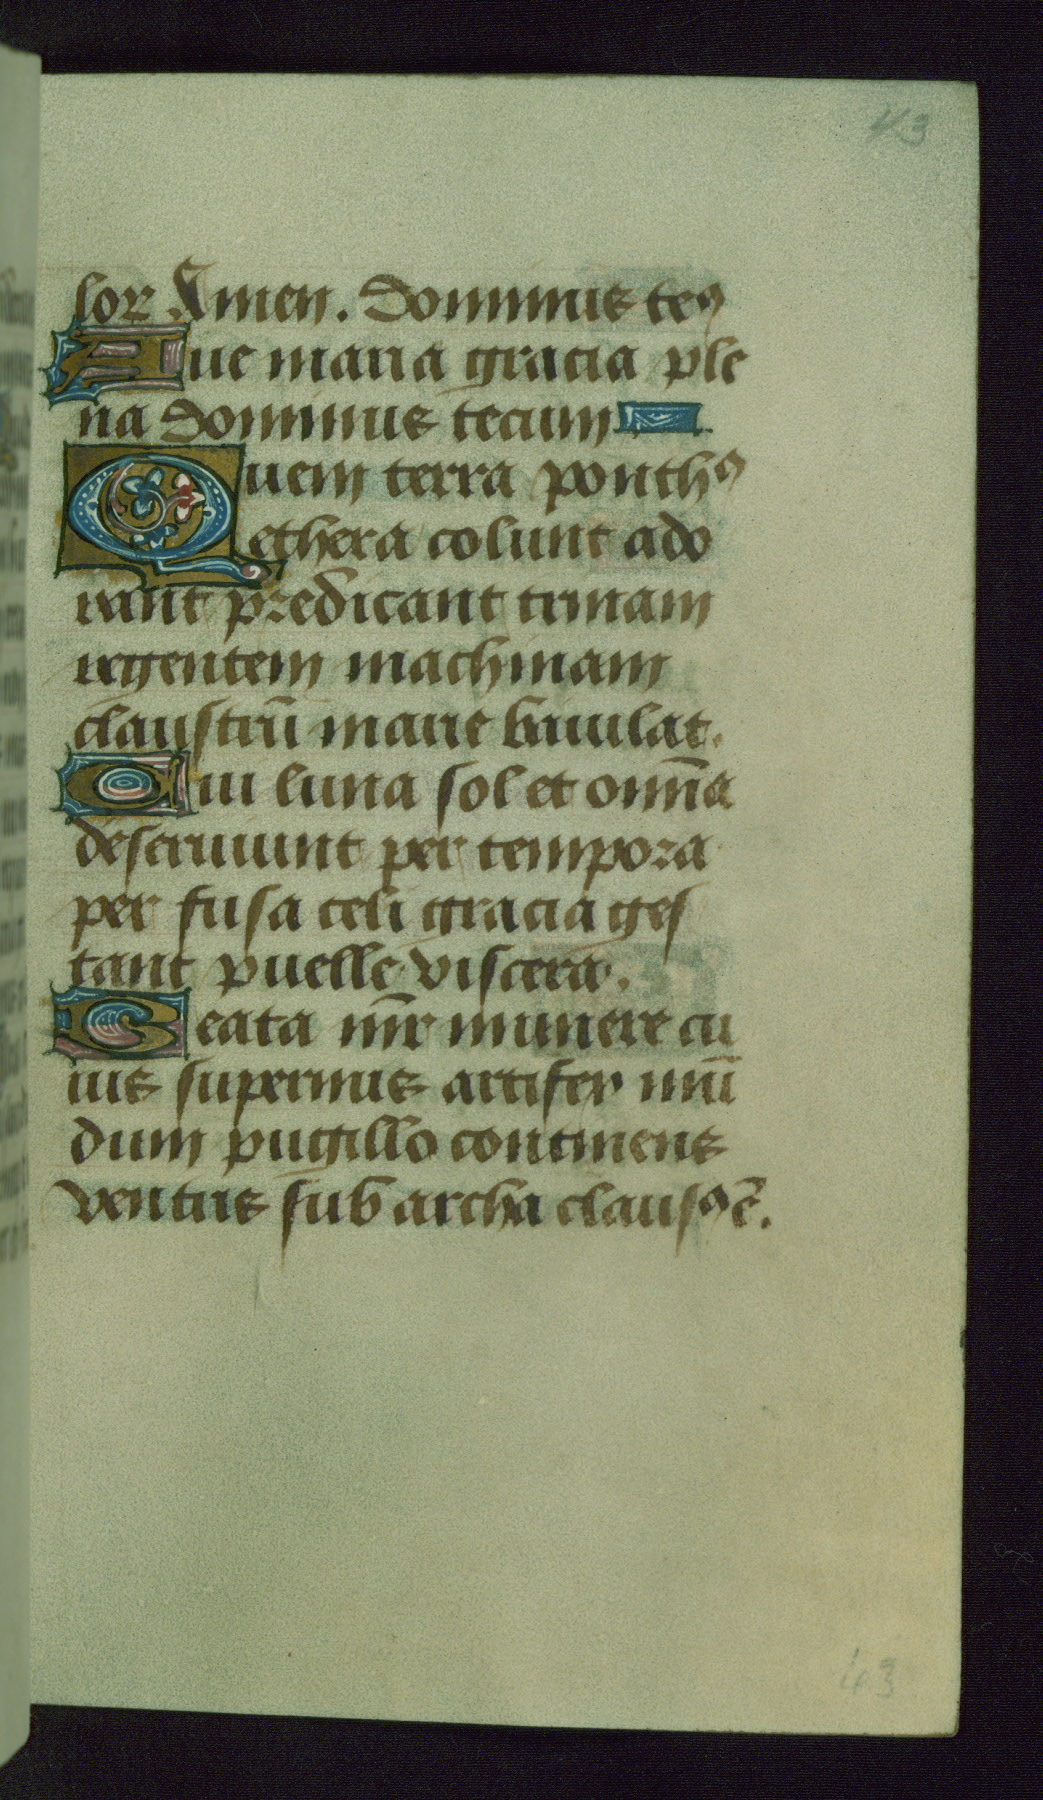 43
lor Amen. Dominus teꝰ
Aue maria gracia ple
na dominus tecum
Quem terra ponthꝰ
ethera colunt ado
rant predicant trinam
regentem machinam
claustrū marie baiulat.
Cui luna sol et omīa
deseruiunt per tempora
per fusa celi gracia ges
tant puelle viscera.
Beata mr̄ munere cu
ius supernus artifex mū
dum pugillo continens
ventris sub archa clausꝰ ē.
43